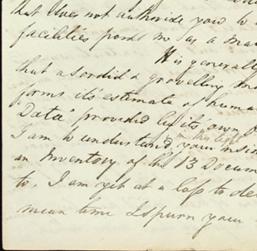 that does not authorize you to
facilities
as a
It is generally
that a sordid & grovelling
forms it's estimate of human
Data" provided by its own
I am to understand your
an Inventory of the 13 Docum
to, I am yet at a loss to de
mean time I spurn your